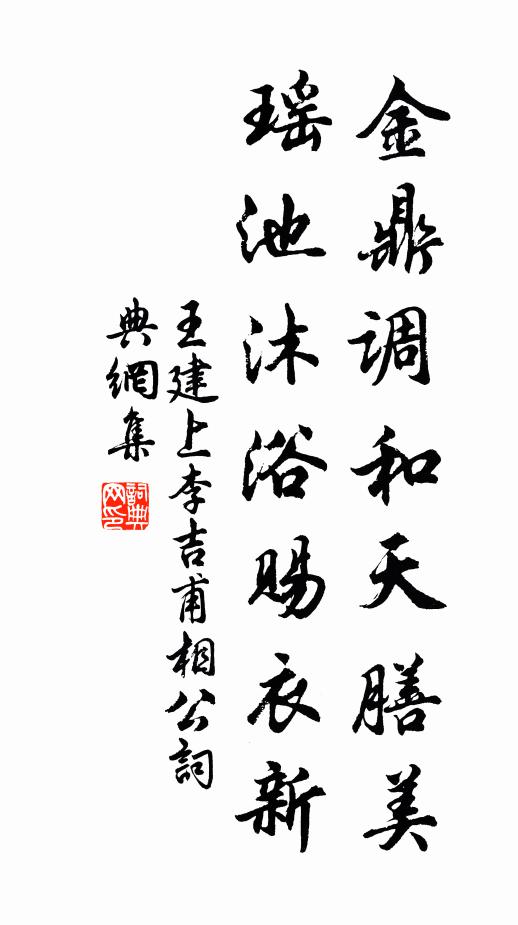 金鼎调和天膳美
瑶池沐浴赐衣新
王建上李吉甫相公詞
典網集
詞典
网印